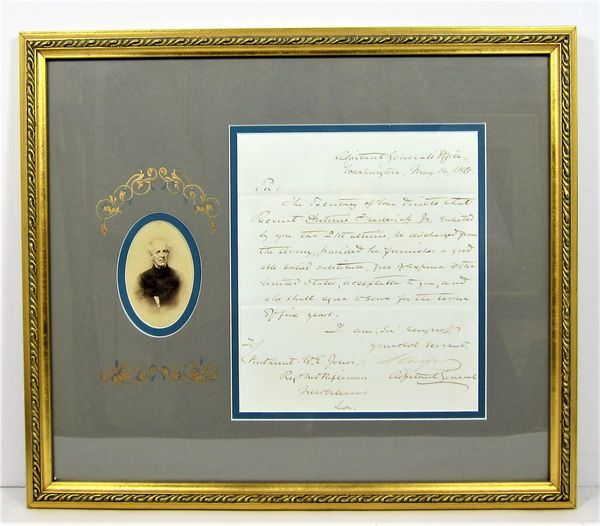 Adjutant General's Office,
Washington, May 14, 1860.
Sir:
The Secretary of War directs that
Recruit Antonio Frederick Jr enlisted
by you the 2d, be discharged from
the Army, provided he furnishes a good
able bodied substitute, free of expense to the
United States, acceptable to you, and
who shall agree to serve for the term
of five years.
I am, Sir, very resp
your obt servant,
S Cooper
Adjutant General
Lieutenant W. E. Jones,
Regt Md Riflemen
New Orleans
La.